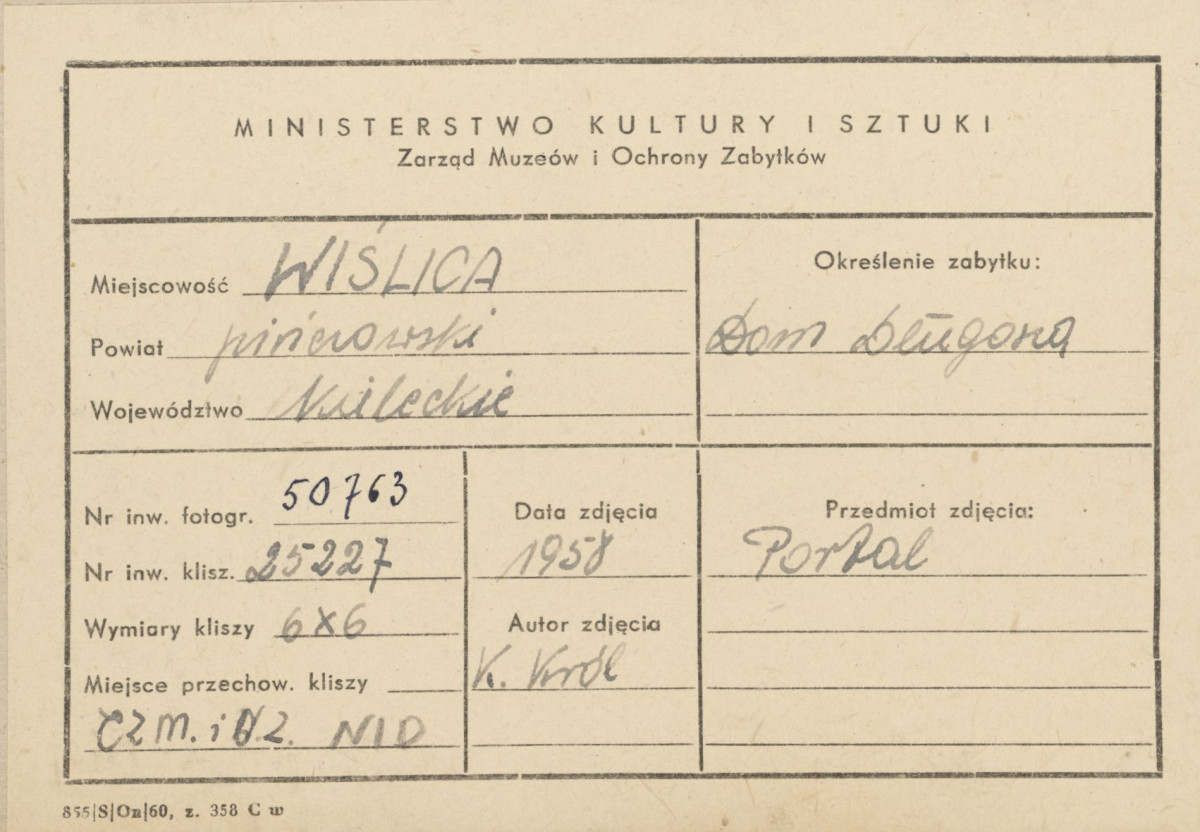 MINISTERSTWO KULTURY I SZTUKI
Zarząd Muzeów i Ochrony Zabytków
Miejscowość WIŚLICA
Powiat pińczowski
Województwo kieleckie
Określenie zabytku:
Dom Długosza
Nr inw. fotogr. 50763
Nr inw. klisz. 25227
Wymiary kliszy 6x6
Miejsce przechow. kliszy
CZM. i OZ. NID
Data zdjęcia
1958
Autor zdjęcia
K. Król
Przedmiot zdjęcia:
Portal
855|S|On|60, z. 358 C w